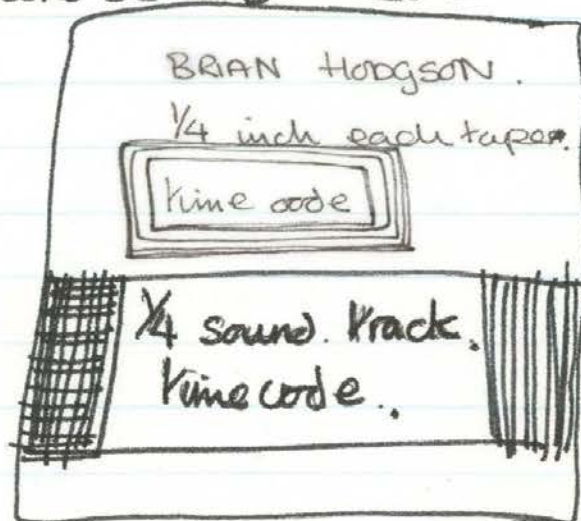 BRIAN HODGSON.
1/4 inch each tape.
time code
1/4 sound. track.
timecode.